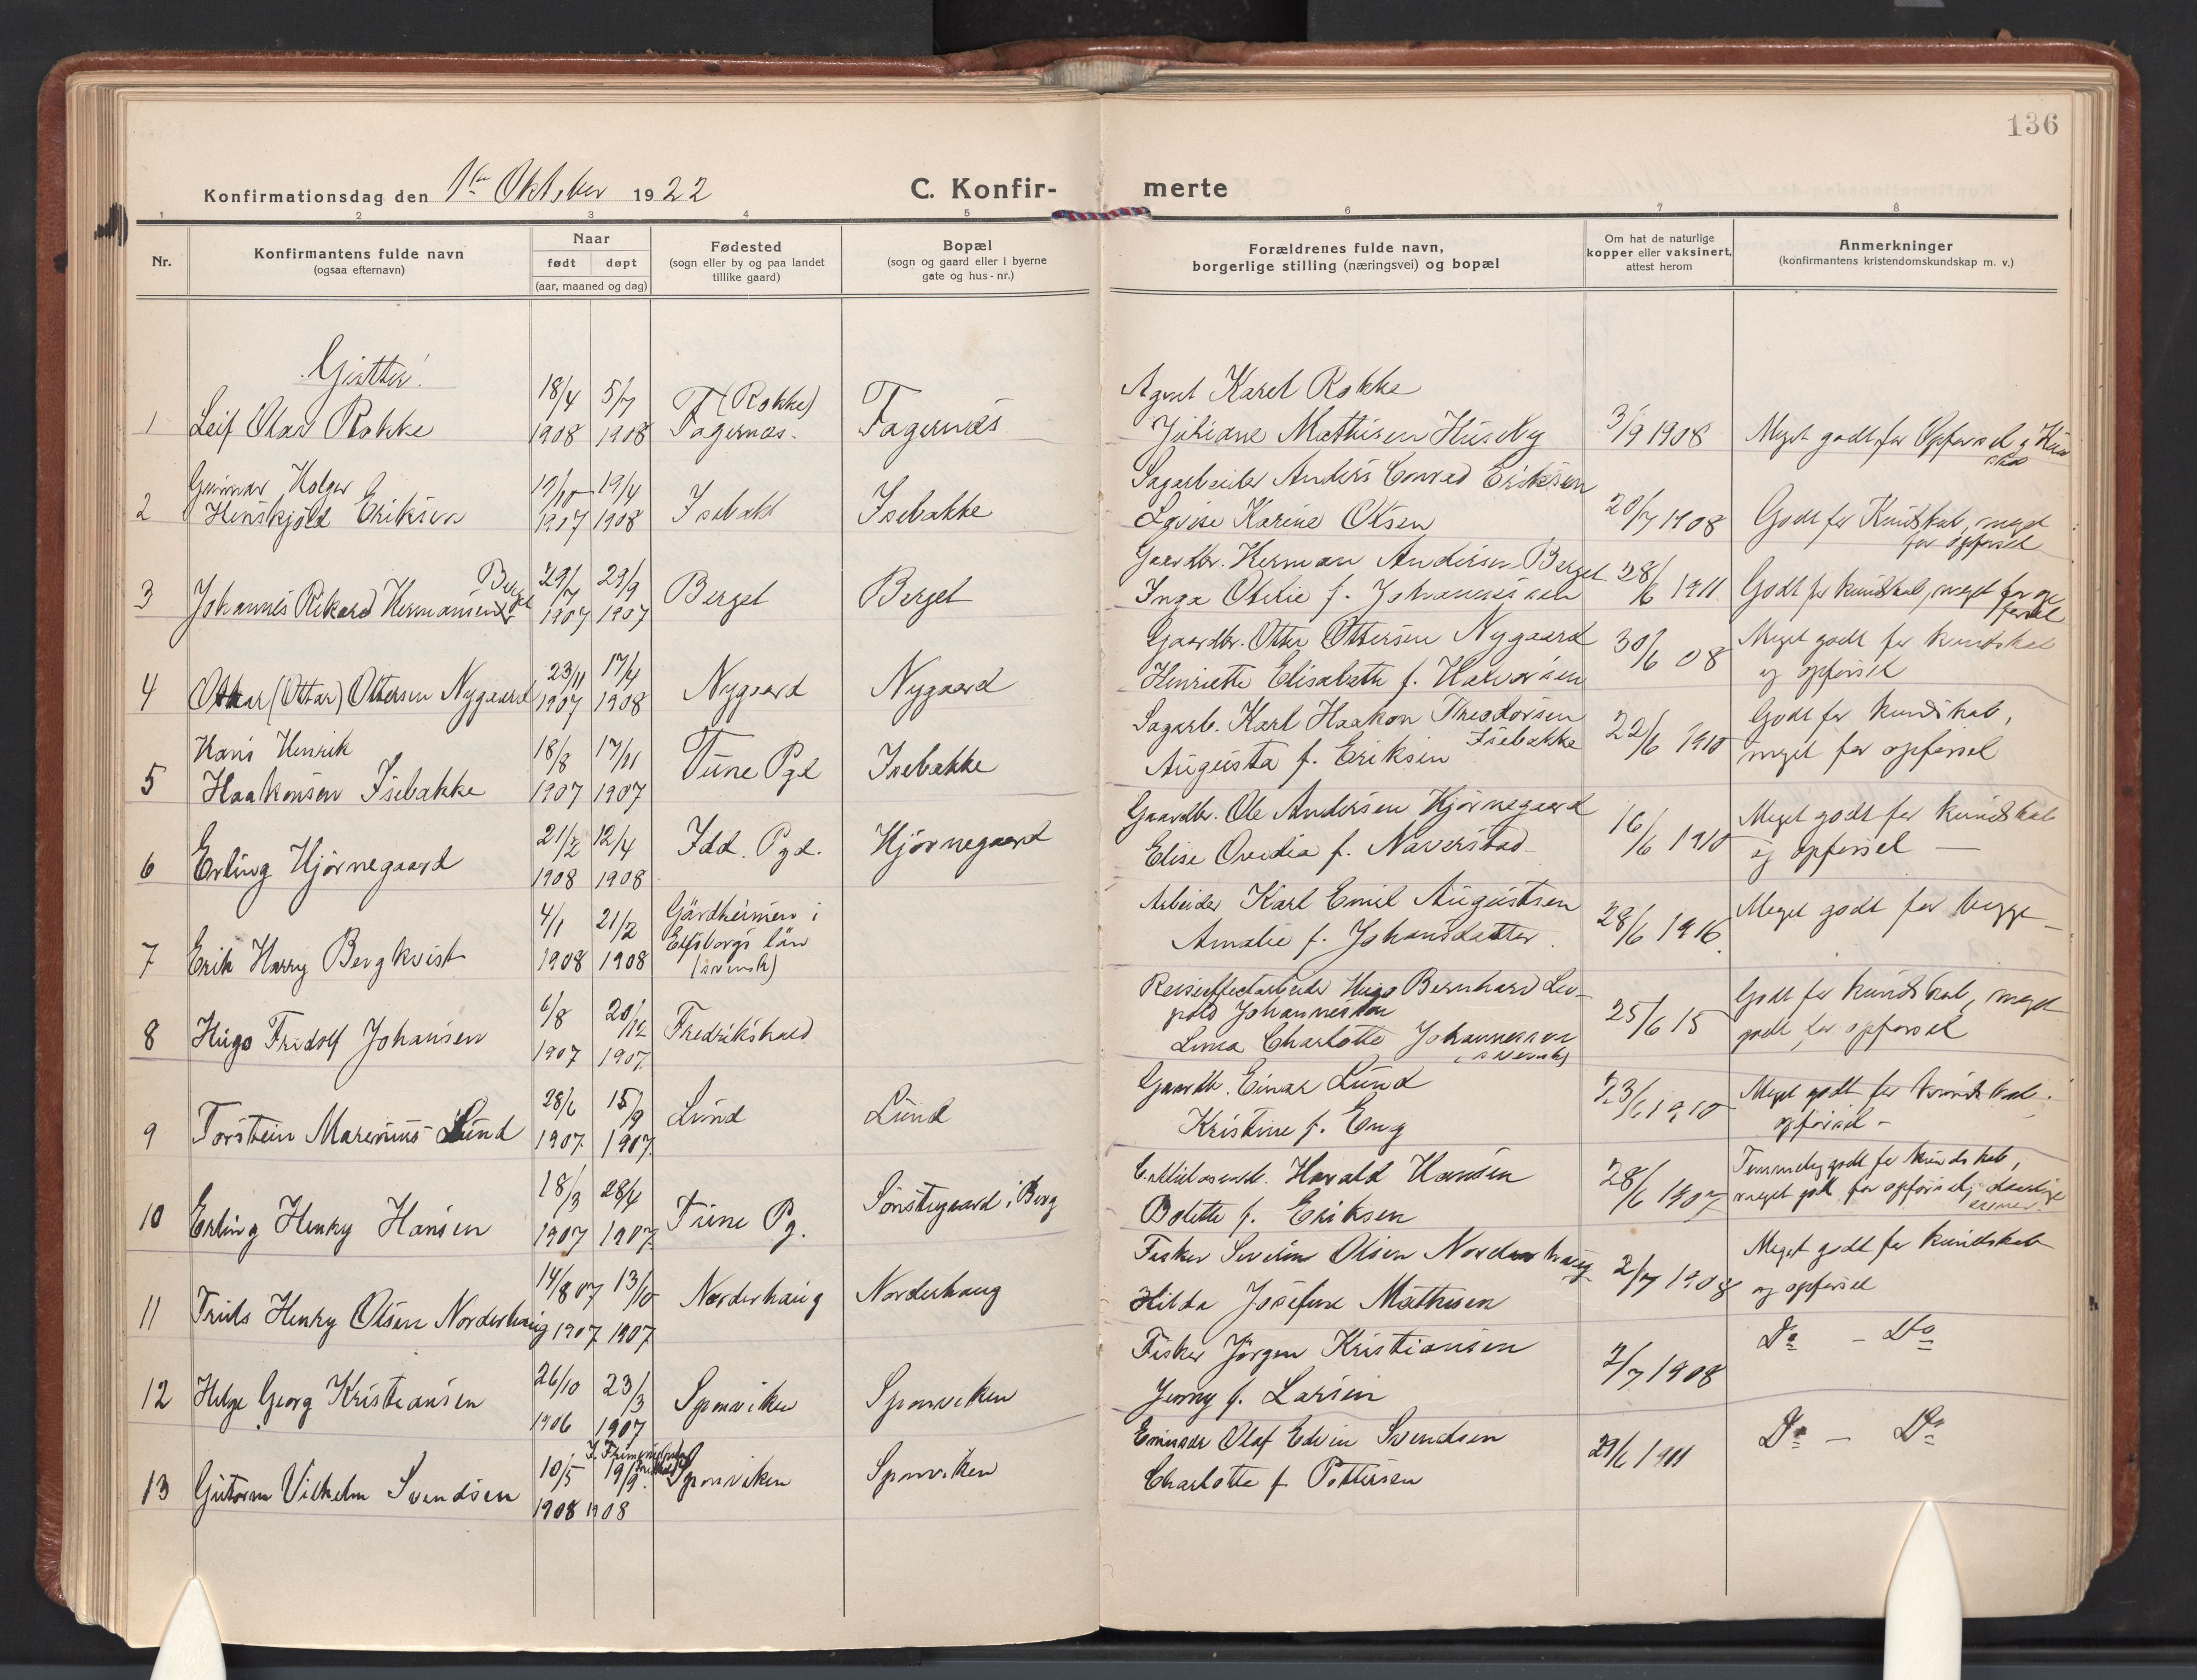 136
Konfirmationsdag den 1ste Oktober 1922
C. Konfir-
merte
1 2 3 4 5 6 7 8
Nr.
Konfirmantens fulde navn
(ogsaa efternavn)
Naar
født
døpt
(aar, maaned og dag)
Fødested
(sogn eller by og paa landet
tillike gaard)
Bopæl
(sogn og gaard eller i byerne
gate og hus-nr.)
Forældrenes fulde navn,
borgerlige stilling (næringsvei) og bopæl
Om hat de naturlige
kopper eller vaksinert,
attest herom
Anmerkninger
(konfirmantens kristendomskundskap m. v.)
Gutter.
18/4 5/7 (Rokke) Agent Karel Rokke
1 Leif Olav Rokke 1908 1908 Fagernæs. Fagernæs Juliane Mathisen Huseby 3/9 1908 Meget godt for Opførsel og
Gunnar Holger 19/10 19/4 Sagarbeider Anders Conrad Eriksen
2 Henskjold Eriksen 1907 1908 Isebakk Isebakke Lovise Karine Olsen 20/7 1908 Godt for Kundskab, meget
for opførsel
Berget 29/7 29/9 Gaardbr. Herman Andersen Berget
3 Johannes Rikard Hermansen 1907 1907 Berget Berget Inga Otilie f. Johannessen 28/6 1911 Godt for kundskab, meget for op
førsel
23/11 17/4 Gaardbr. Otter Ottersen Nygaard 30/6 08 Meget godt for kundskab
4 Ottar (Ottar) Ottersen Nygaard 1907 1908 Nygaard Nygaard Henriette Elisabeth f. Halvorsen og opførsel
Hans Henrik 18/8 17/11 Sagarb. Karl Haakon Theodorsen Godt for kundskab,
5 Haakonsen Isebakke 1907 1907 Tune Pgd Isebakke Augusta f. Eriksen Isebakke 22/6 1910 meget for opførsel
21/2 12/4 Gaardbr. Ole Andersen Hjørnegaard Meget godt for kundskab
6 Erling Hjørnegaard 1908 1908 Idd. Pgd. Hjørnegaard Elise Ovedia f. Naverstad 16/6 1910 og opførsel —
4/1 21/2 Gärdheimen i Arbeider Karl Emil Augustsen Meget godt for begge
7 Erik Harry Bergkvist 1908 1908 Elfsborgs län Amalie f. Johansdatter 28/6 1916
(svensk)
6/8 20/12 Reiseeffectarbeider Hugo Bernhard Leo- Godt for kundskab, meget
8 Hugo Fridolf Johansen 1907 1907 Fredrikshald pold Johanneson 25/6 15 godt for opførsel
Charlotte Johannesson
(svensk)
28/6 15/9 Gaardb. Einar Lund Meget godt for kundskab.
9 Torstein Marenius Lund 1907 1907 Lund Lund Kristine f. Eng 23/6 1910 opførsel -
18/3 28/4 Harald Hansen Temmelig godt for kundskab,
10 Erling Henry Hansen 1907 1907 Tune Pg. Sønstegaard i Berg Bolette f. Eriksen 28/6 1907 meget godt for opførsel, daarlige
evner
14/8 07 13/10 Fisker Severin Olsen Norderhaug Meget godt for kundskab
11 Truls Henry Olsen Norderhaug 1907 1907 Norderhaug Norderhaug Hilda Josefine Mathisen 2/7 1908 og opførsel
26/10 23/3 Fisker Jørgen Kristiansen Do — Do
12 Helge Georg Kristiansen 1906 1907 Sponviken Sponviken Jenny f. Larsen 2/7 1908
10/5 19/9 Olaf Edvin Svendsen Do — Do
13 Gutorm Vilhelm Svendsen 1908 1908 Sponviken Sponviken Charlotte f. Pettersen 29/6 1911